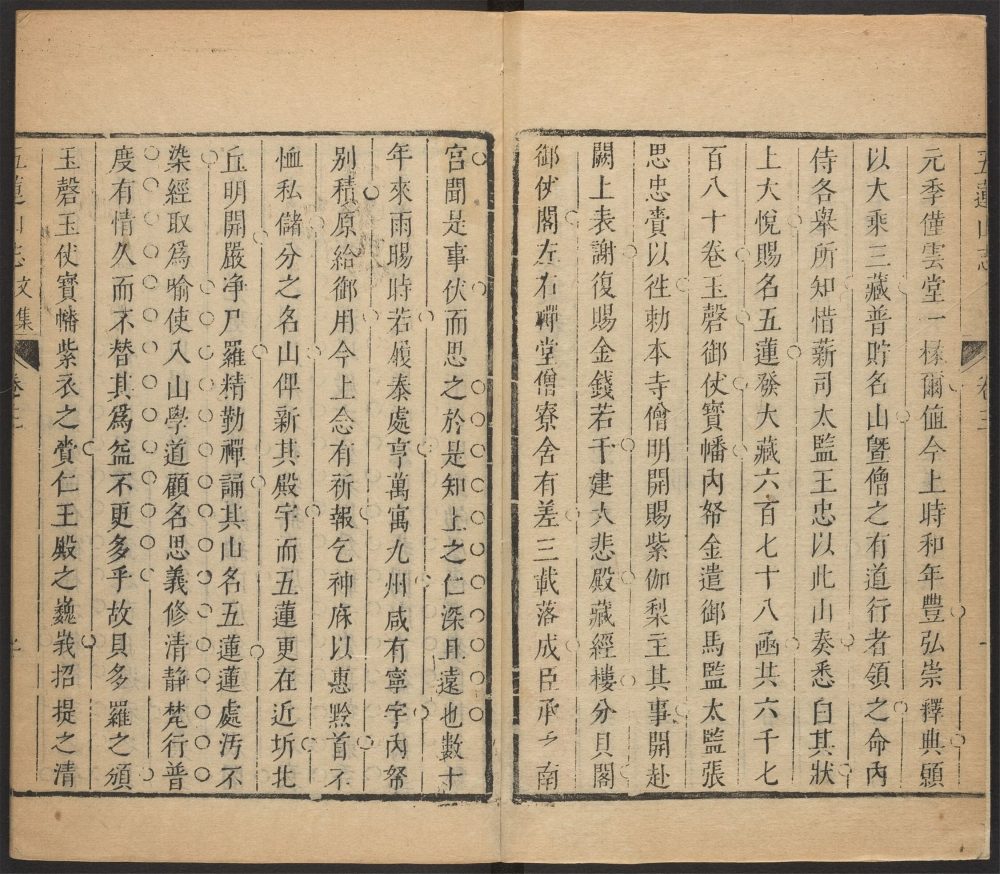 五蓮山志
卷三
元季僅雲堂一椽爾値今上時和年豐弘崇釋典願
以大乘三藏普貯名山曁僧之有道行者領之命內
侍各舉所知惜薪司太監王忠以此山奏悉白其狀
上大悅賜名五蓮發大藏六百七十八凾共六千七
百八十卷玉磬御仗寶幡內帑金遣御馬監太監張
思忠賫以徃勅本寺僧明開賜紫伽梨主其事開赴
闕上表謝復賜金錢若干建大悲殿藏經樓分貝閣
御仗閣左右禪堂僧寮舍有差三載落成臣承乏南
宮聞是事伏而思之於是知上之仁深且遠也數十
年來雨暘時若履泰處亨萬寓九州咸有寧宇內帑
別積原給御用今上念有祈報乞神庥以惠黔首不
恤私儲分之名山俾新其殿宇而五蓮更在近圻北
丘明開嚴净尸羅精勤禪誦其山名五蓮蓮處汚不
染經取爲喻使入山學道顧名思義修清静梵行普
度有情久而不替其爲益不更多乎故貝多羅之頒
玉磬玉仗寶幡紫衣之賫仁王殿之巍峩招提之清
五蓮山志文集
卷三